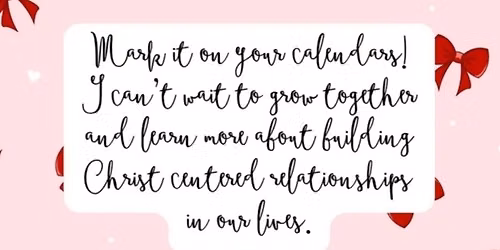 Mark it on your calendars!
I can't wait to grow together
and learn more about building
Christ centered relationships
in our lives.